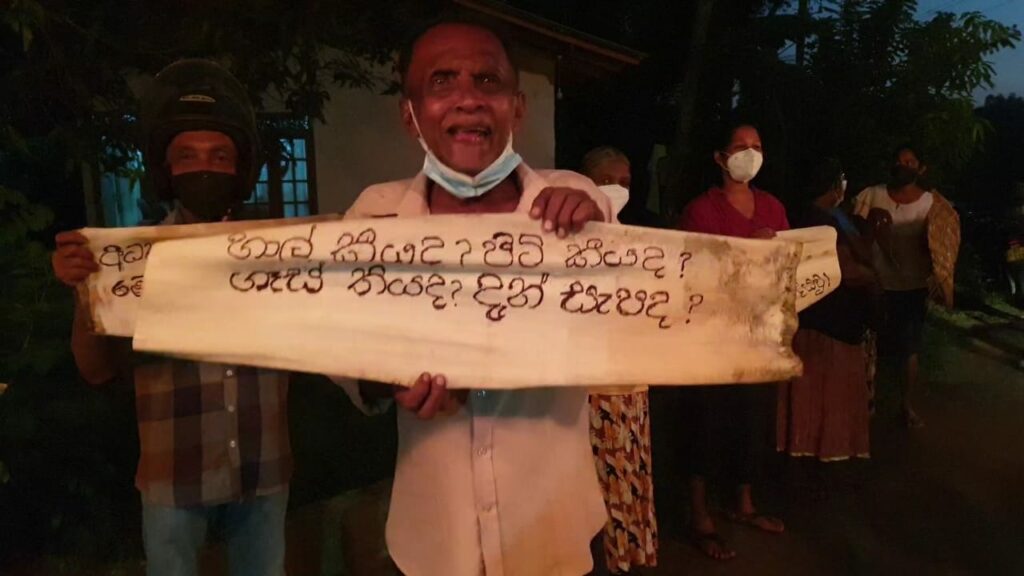 හාල් කීයද? පිටි කීයද?
ගෑස් තියද? දැන් සැපද?